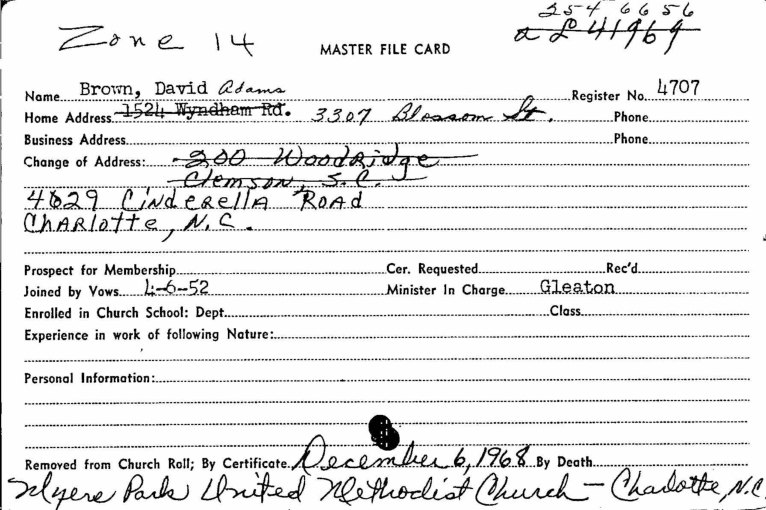 254 6656
Zone 14 MASTER FILE CARD a L 41969
Name Brown, David Adams Register No. 4707
Home Address 1524 Wyndham Rd. 3307 Blossom St. Phone
Business Address Phone
Change of Address: 200 Woodridge
Clemson, S.C.
4029 Cinderella Road
Charlotte, N.C.
Prospect for Membership Cer. Requested Rec'd
Joined by Vows 4-6-52 Minister In Charge Gleaton
Enrolled in Church School: Dept. Class
Experience in work of following Nature:
Personal Information:
Removed from Church Roll; By Certificate December 6, 1968 By Death
Myers Park United Methodist Church - Charlotte, N.C.